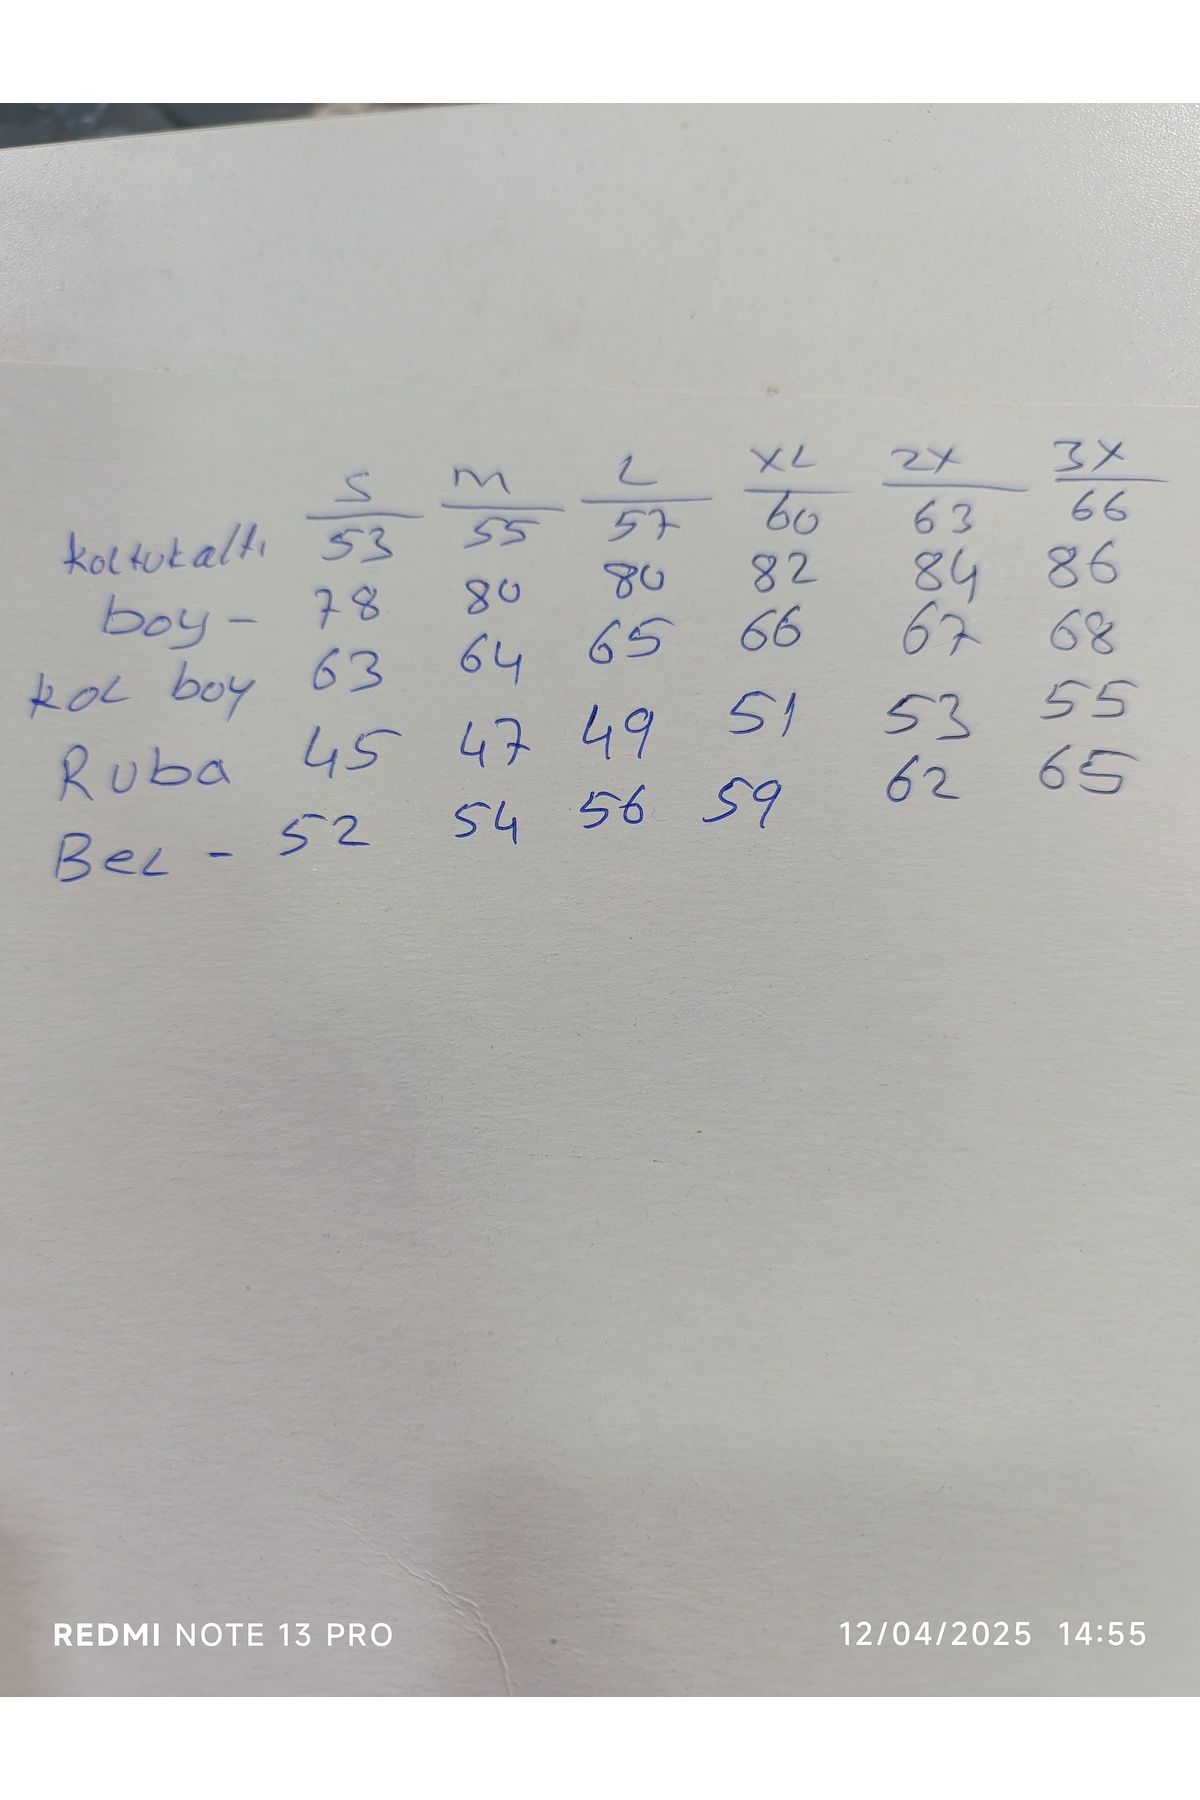 S M L XL 2X 3X
koltukaltı 53 55 57 60 63 66
boy - 78 80 80 82 84 86
kol boy 63 64 65 66 67 68
Ruba 45 47 49 51 53 55
Bel - 52 54 56 59 62 65
REDMI NOTE 13 PRO 12/04/2025 14:55